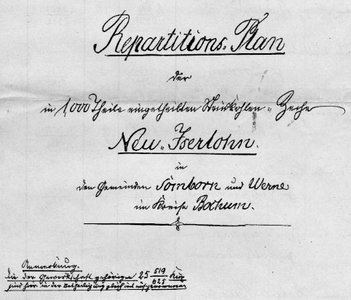 Repartitions-Plan
der
in 1000 Theile eingetheilten Steinkohlen-Zeche
Neu-Iserlohn.
in
den Gemeinden Somborn und Werne
im Kreise Bochum.
Anmerkung.
die der Gewerkschaft gehörigen 25 519/825
sind hier in der